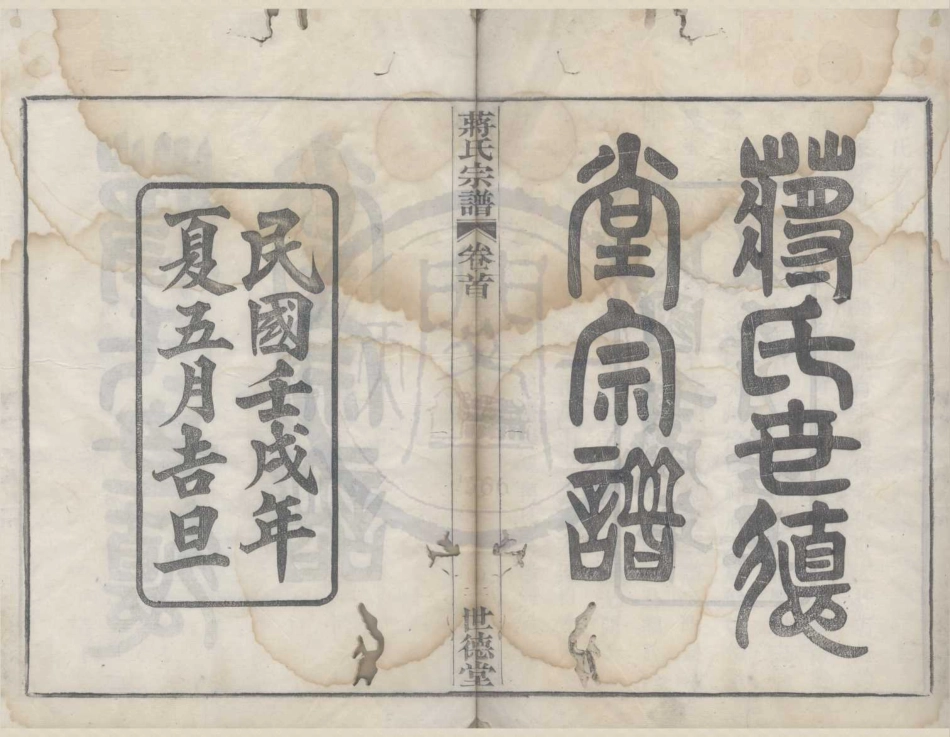 蔣氏世德
堂宗譜
蔣氏宗譜 卷首 世德堂
民國壬戌年
夏五月吉旦